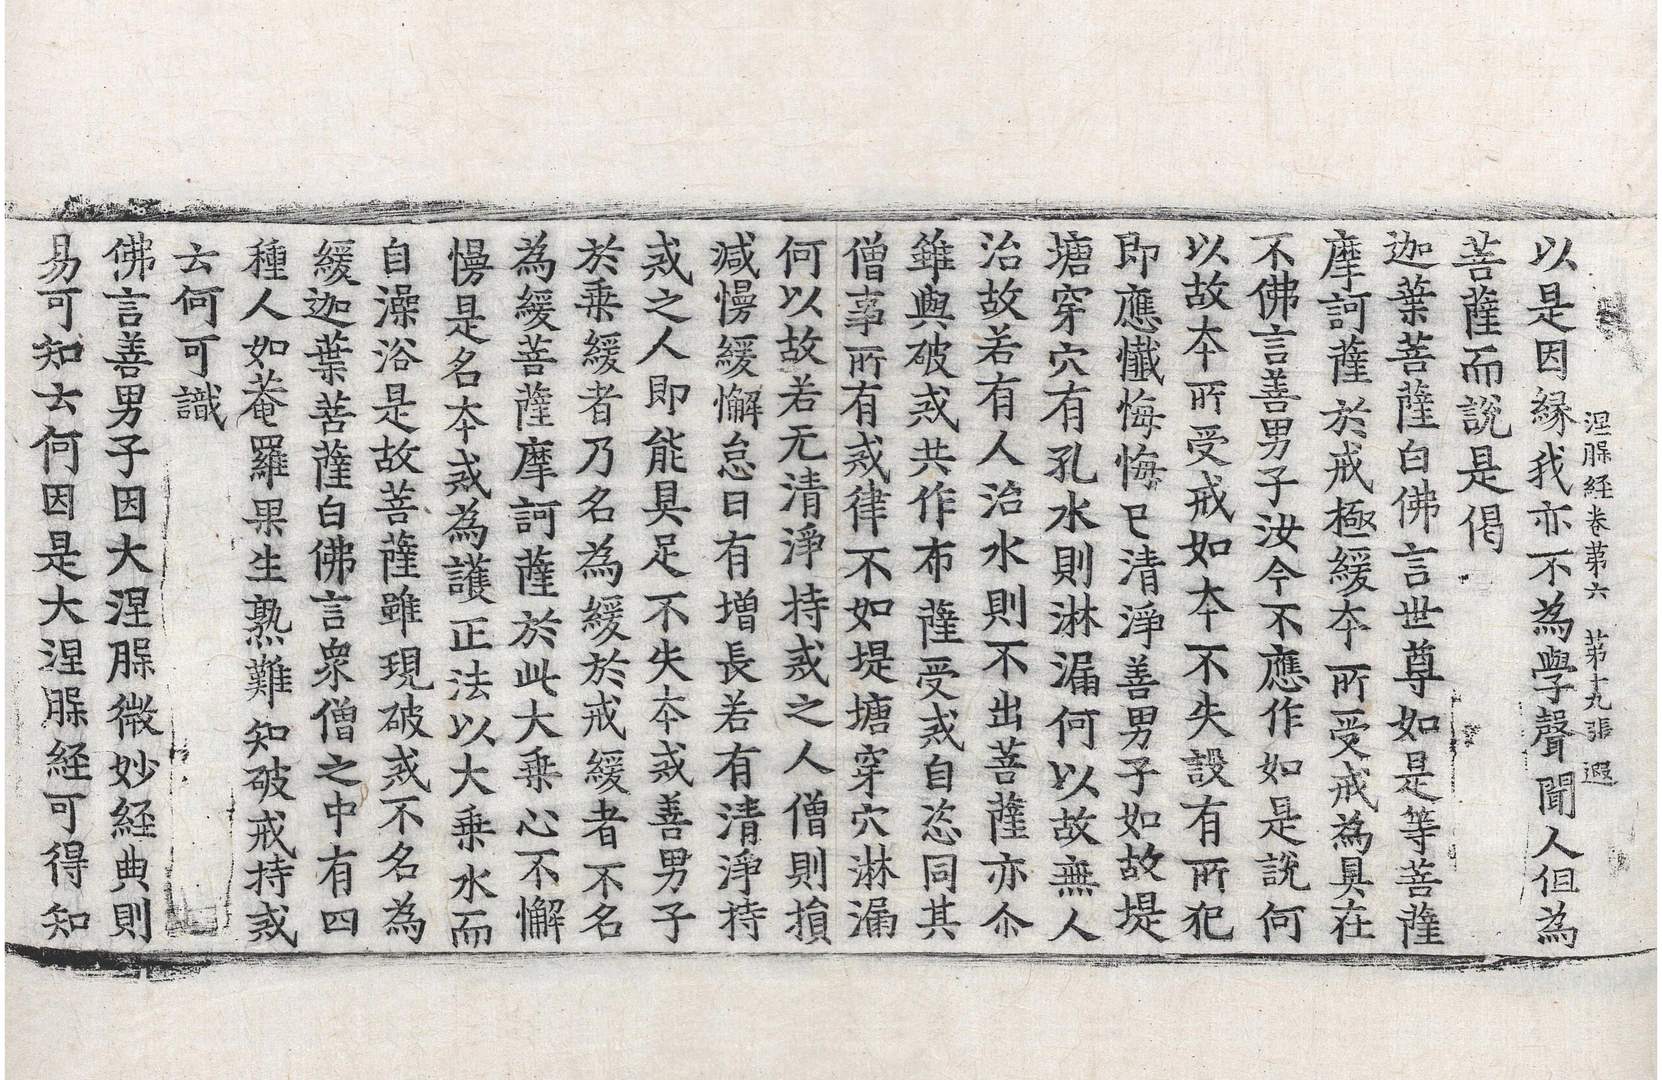 涅槃経卷第六　第十九張　遐
以是因縁我亦不為學聲聞人但為
菩薩而說是偈
迦葉菩薩白佛言世尊如是等菩薩
摩訶薩於戒極緩夲所受戒為具在
不佛言善男子汝今不應作如是說何
以故夲所受戒如夲不失設有所犯
即應懴悔悔已清淨善男子如故堤
塘穿穴有孔水則淋漏何以故無人
治故若有人治水則不出菩薩亦尒
雖與破戒共作布薩受戒自恣同其
僧事所有戒律不如堤塘穿穴淋漏
何以故若无清淨持戒之人僧則損
減慢緩懈怠日有增長若有清淨持
戒之人即能具足不失夲戒善男子
於乗緩者乃名為緩於戒緩者不名
為緩菩薩摩訶薩於此大乗心不懈
慢是名夲戒為護正法以大乗水而
自澡浴是故菩薩雖現破戒不名為
緩迦葉菩薩白佛言衆僧之中有四
種人如菴羅果生熟難知破戒持戒
云何可識
佛言善男子因大涅槃微妙経典則
易可知云何因是大涅槃経可得知